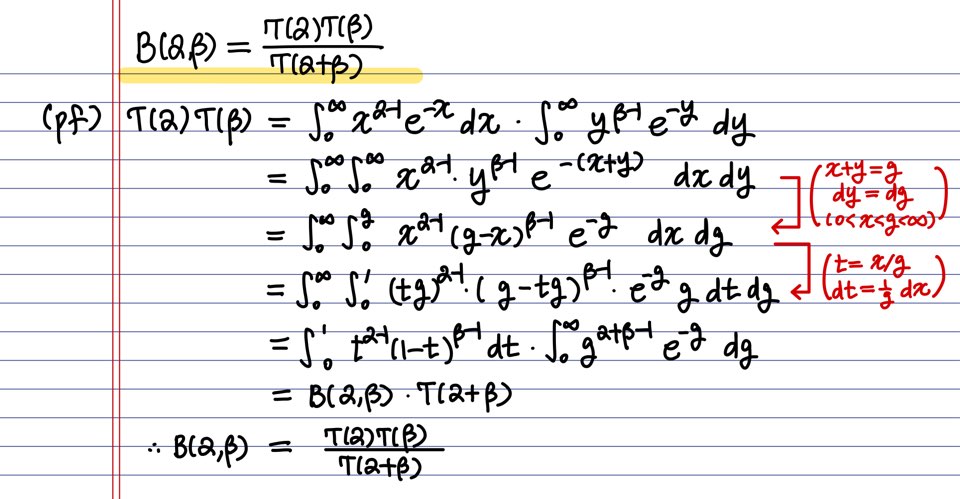 B(α,β) = Γ(α)Γ(β) / Γ(α+β)
(pf) Γ(α)Γ(β) = ∫₀^∞ x^(α-1) e^(-x) dx · ∫₀^∞ y^(β-1) e^(-y) dy
= ∫₀^∞ ∫₀^∞ x^(α-1) · y^(β-1) e^(-(x+y)) dx dy
(x+y=g
dy = dg
(0<x<g<∞))
= ∫₀^∞ ∫₀^g x^(α-1) (g-x)^(β-1) e^(-g) dx dg
(t = x/g
dt = 1/g dx)
= ∫₀^∞ ∫₀^1 (tg)^(α-1) · (g-tg)^(β-1) · e^(-g) g dt dg
= ∫₀^1 t^(α-1) (1-t)^(β-1) dt · ∫₀^∞ g^(α+β-1) e^(-g) dg
= B(α,β) · Γ(α+β)
∴ B(α,β) = Γ(α)Γ(β) / Γ(α+β)